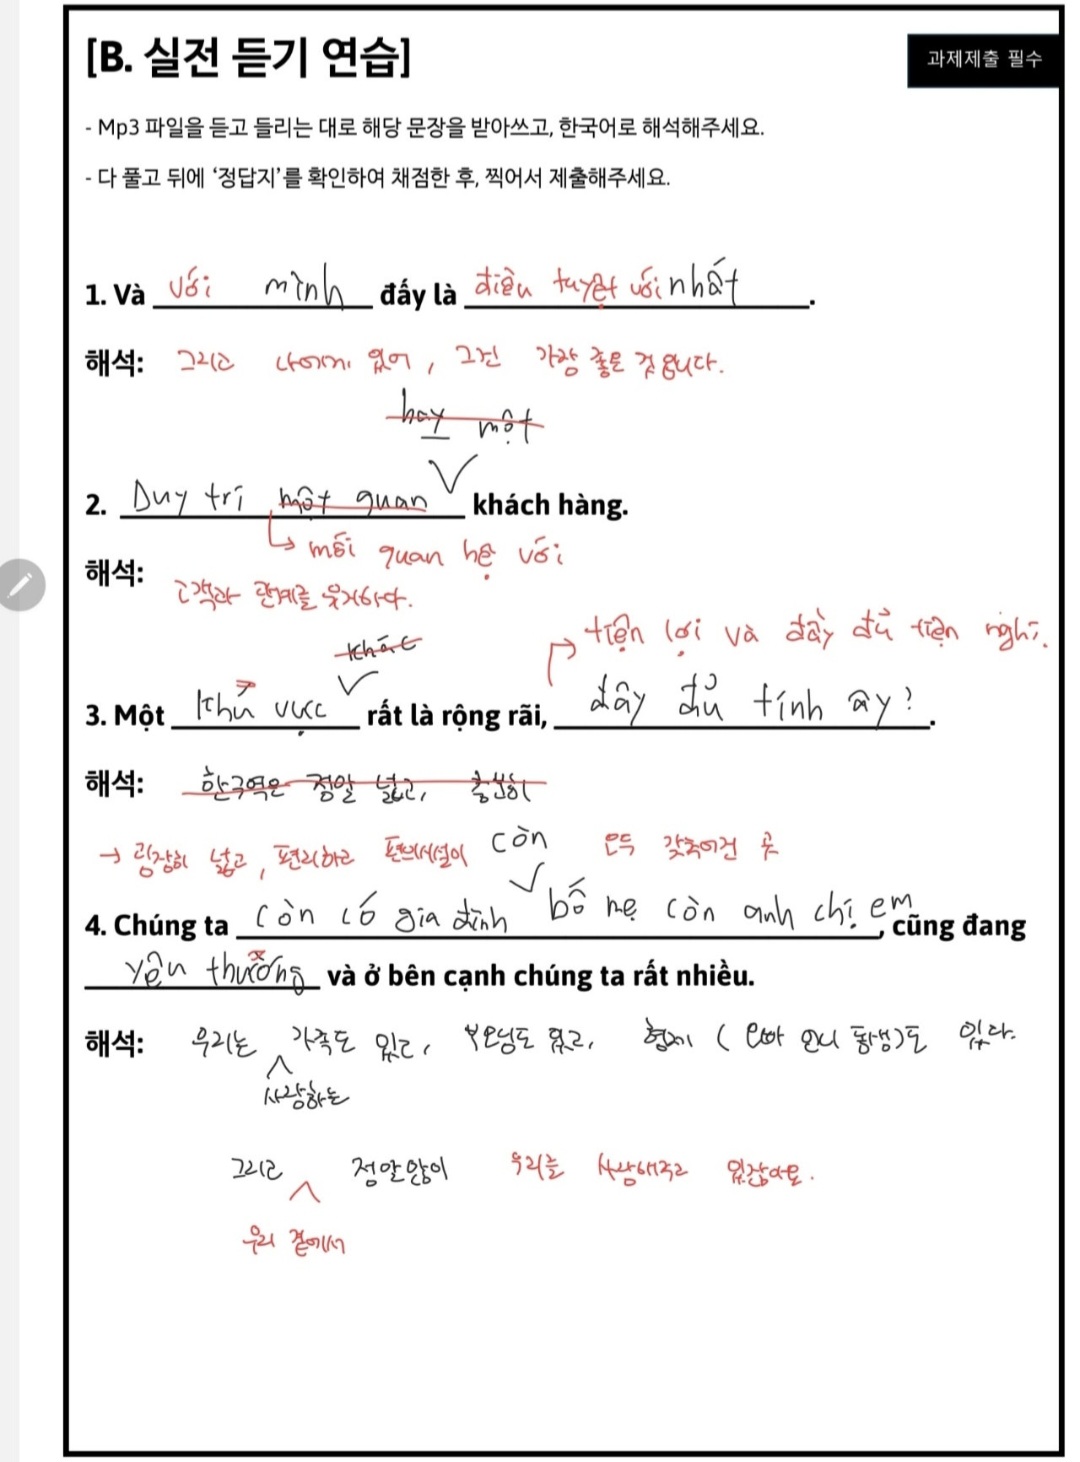 [B. 실전 듣기 연습]
과제제출 필수
- Mp3 파일을 듣고 들리는 대로 해당 문장을 받아쓰고, 한국어로 해석해주세요.
- 다 풀고 뒤에 ‘정답지’를 확인하여 채점한 후, 찍어서 제출해주세요.
1. Và với mình đấy là điều tuyệt vời nhất.
해석: 그리고 나에게 있어, 그건 가장 좋은 것입니다.
hay một
2. Duy trì một quan khách hàng.
mối quan hệ với
해석:
고객과 관계를 유지하다.
tiện lợi và đầy đủ tiện nghi.
khác
3. Một khu vực rất là rộng rãi, đây đủ tính ây?.
해석: 한구역은 정말 넓고,
→ 굉장히 넓고, 편리하고 편의시설이 모두 갖추어진 곳
còn
4. Chúng ta còn có gia đình bố mẹ còn anh chị em, cũng đang
yêu thương và ở bên cạnh chúng ta rất nhiều.
해석: 우리는 가족도 있고, 부모님도 있고, 형제 (오빠 언니 동생)도 있다.
사랑하는
그리고 정말많이 우리를 사랑해주고 있잖아요.
우리 곁에서